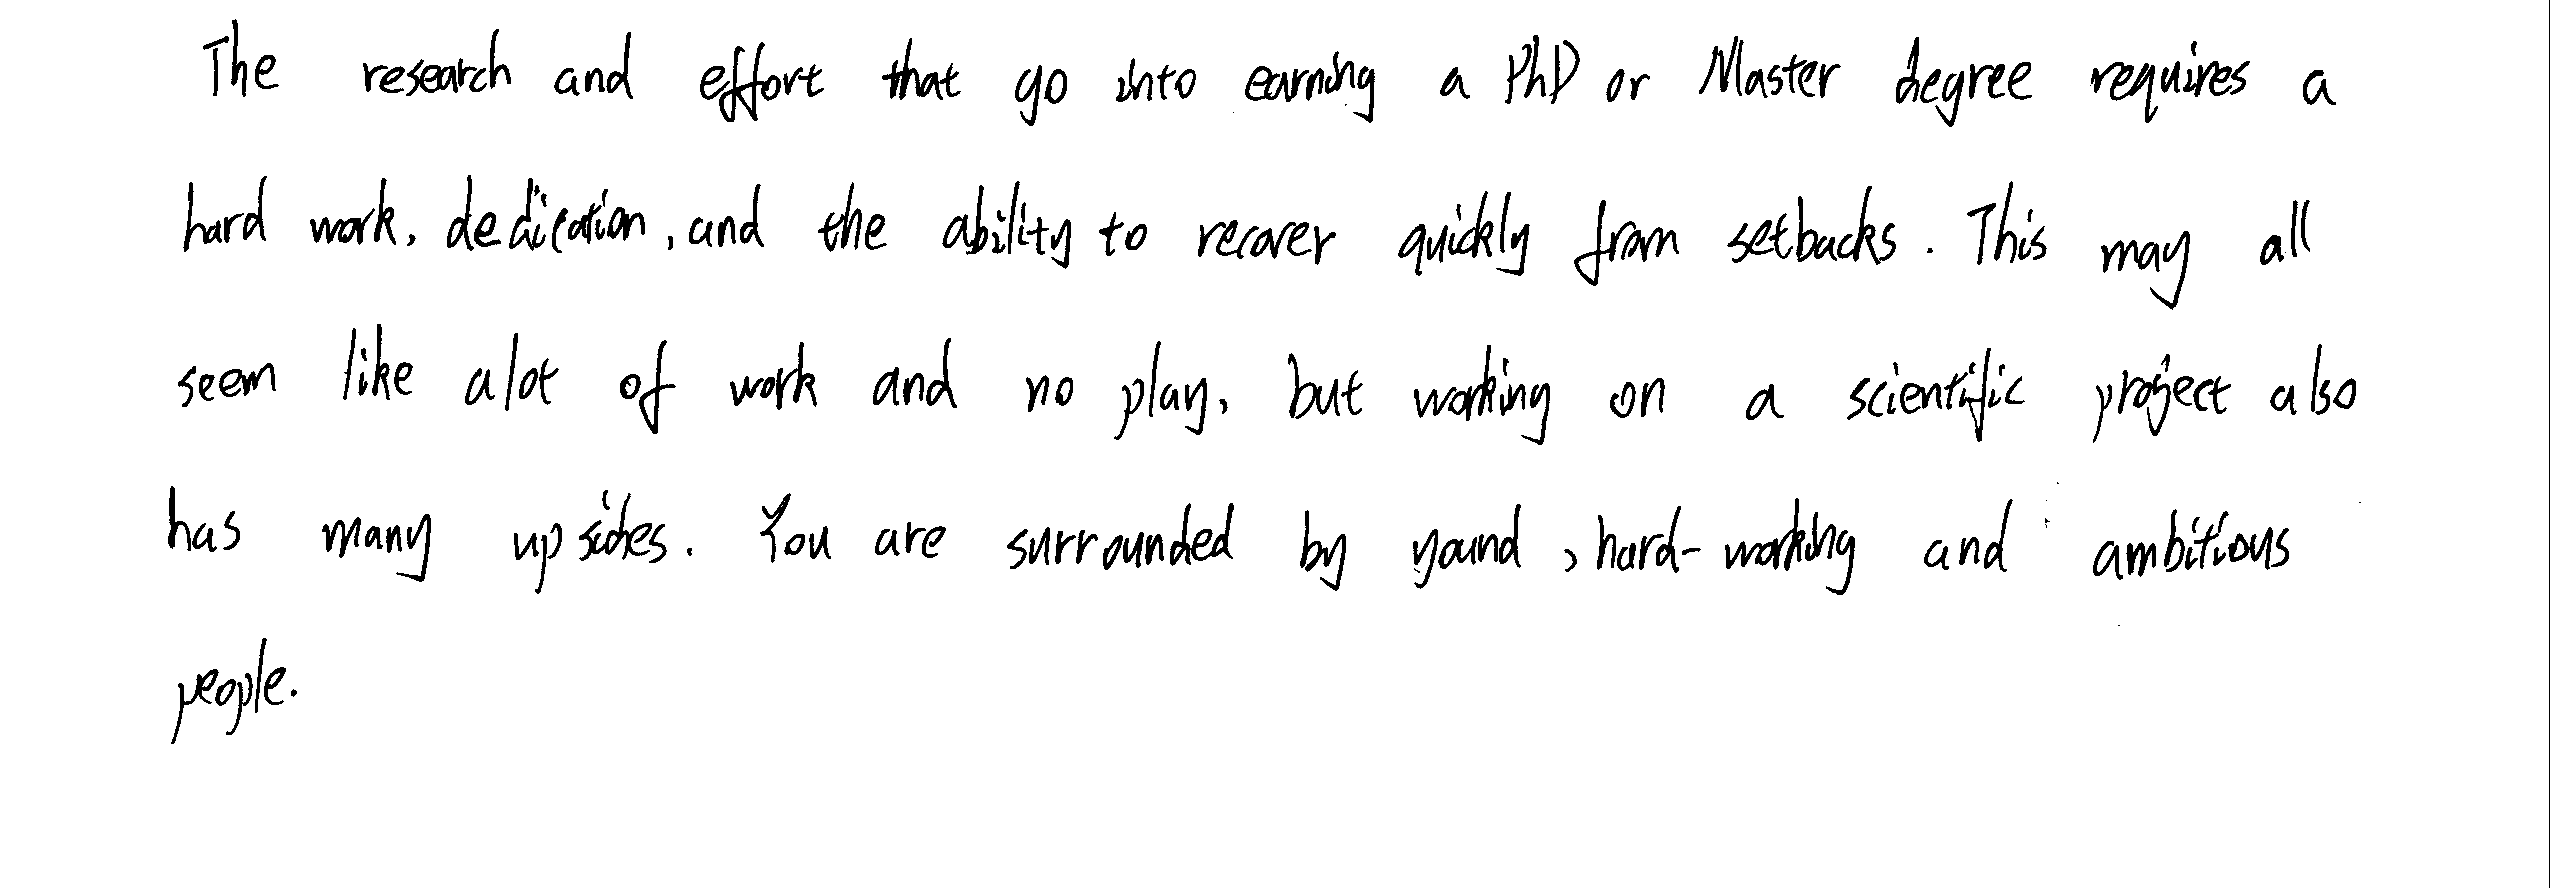 The research and effort that go into earning a PhD or Master degree requires a
hard work, dedication, and the ability to recover quickly from setbacks. This may all
seem like alot of work and no play, but working on a scientific project also
has many upsides. You are surrounded by yound, hard-working and ambitious
people.